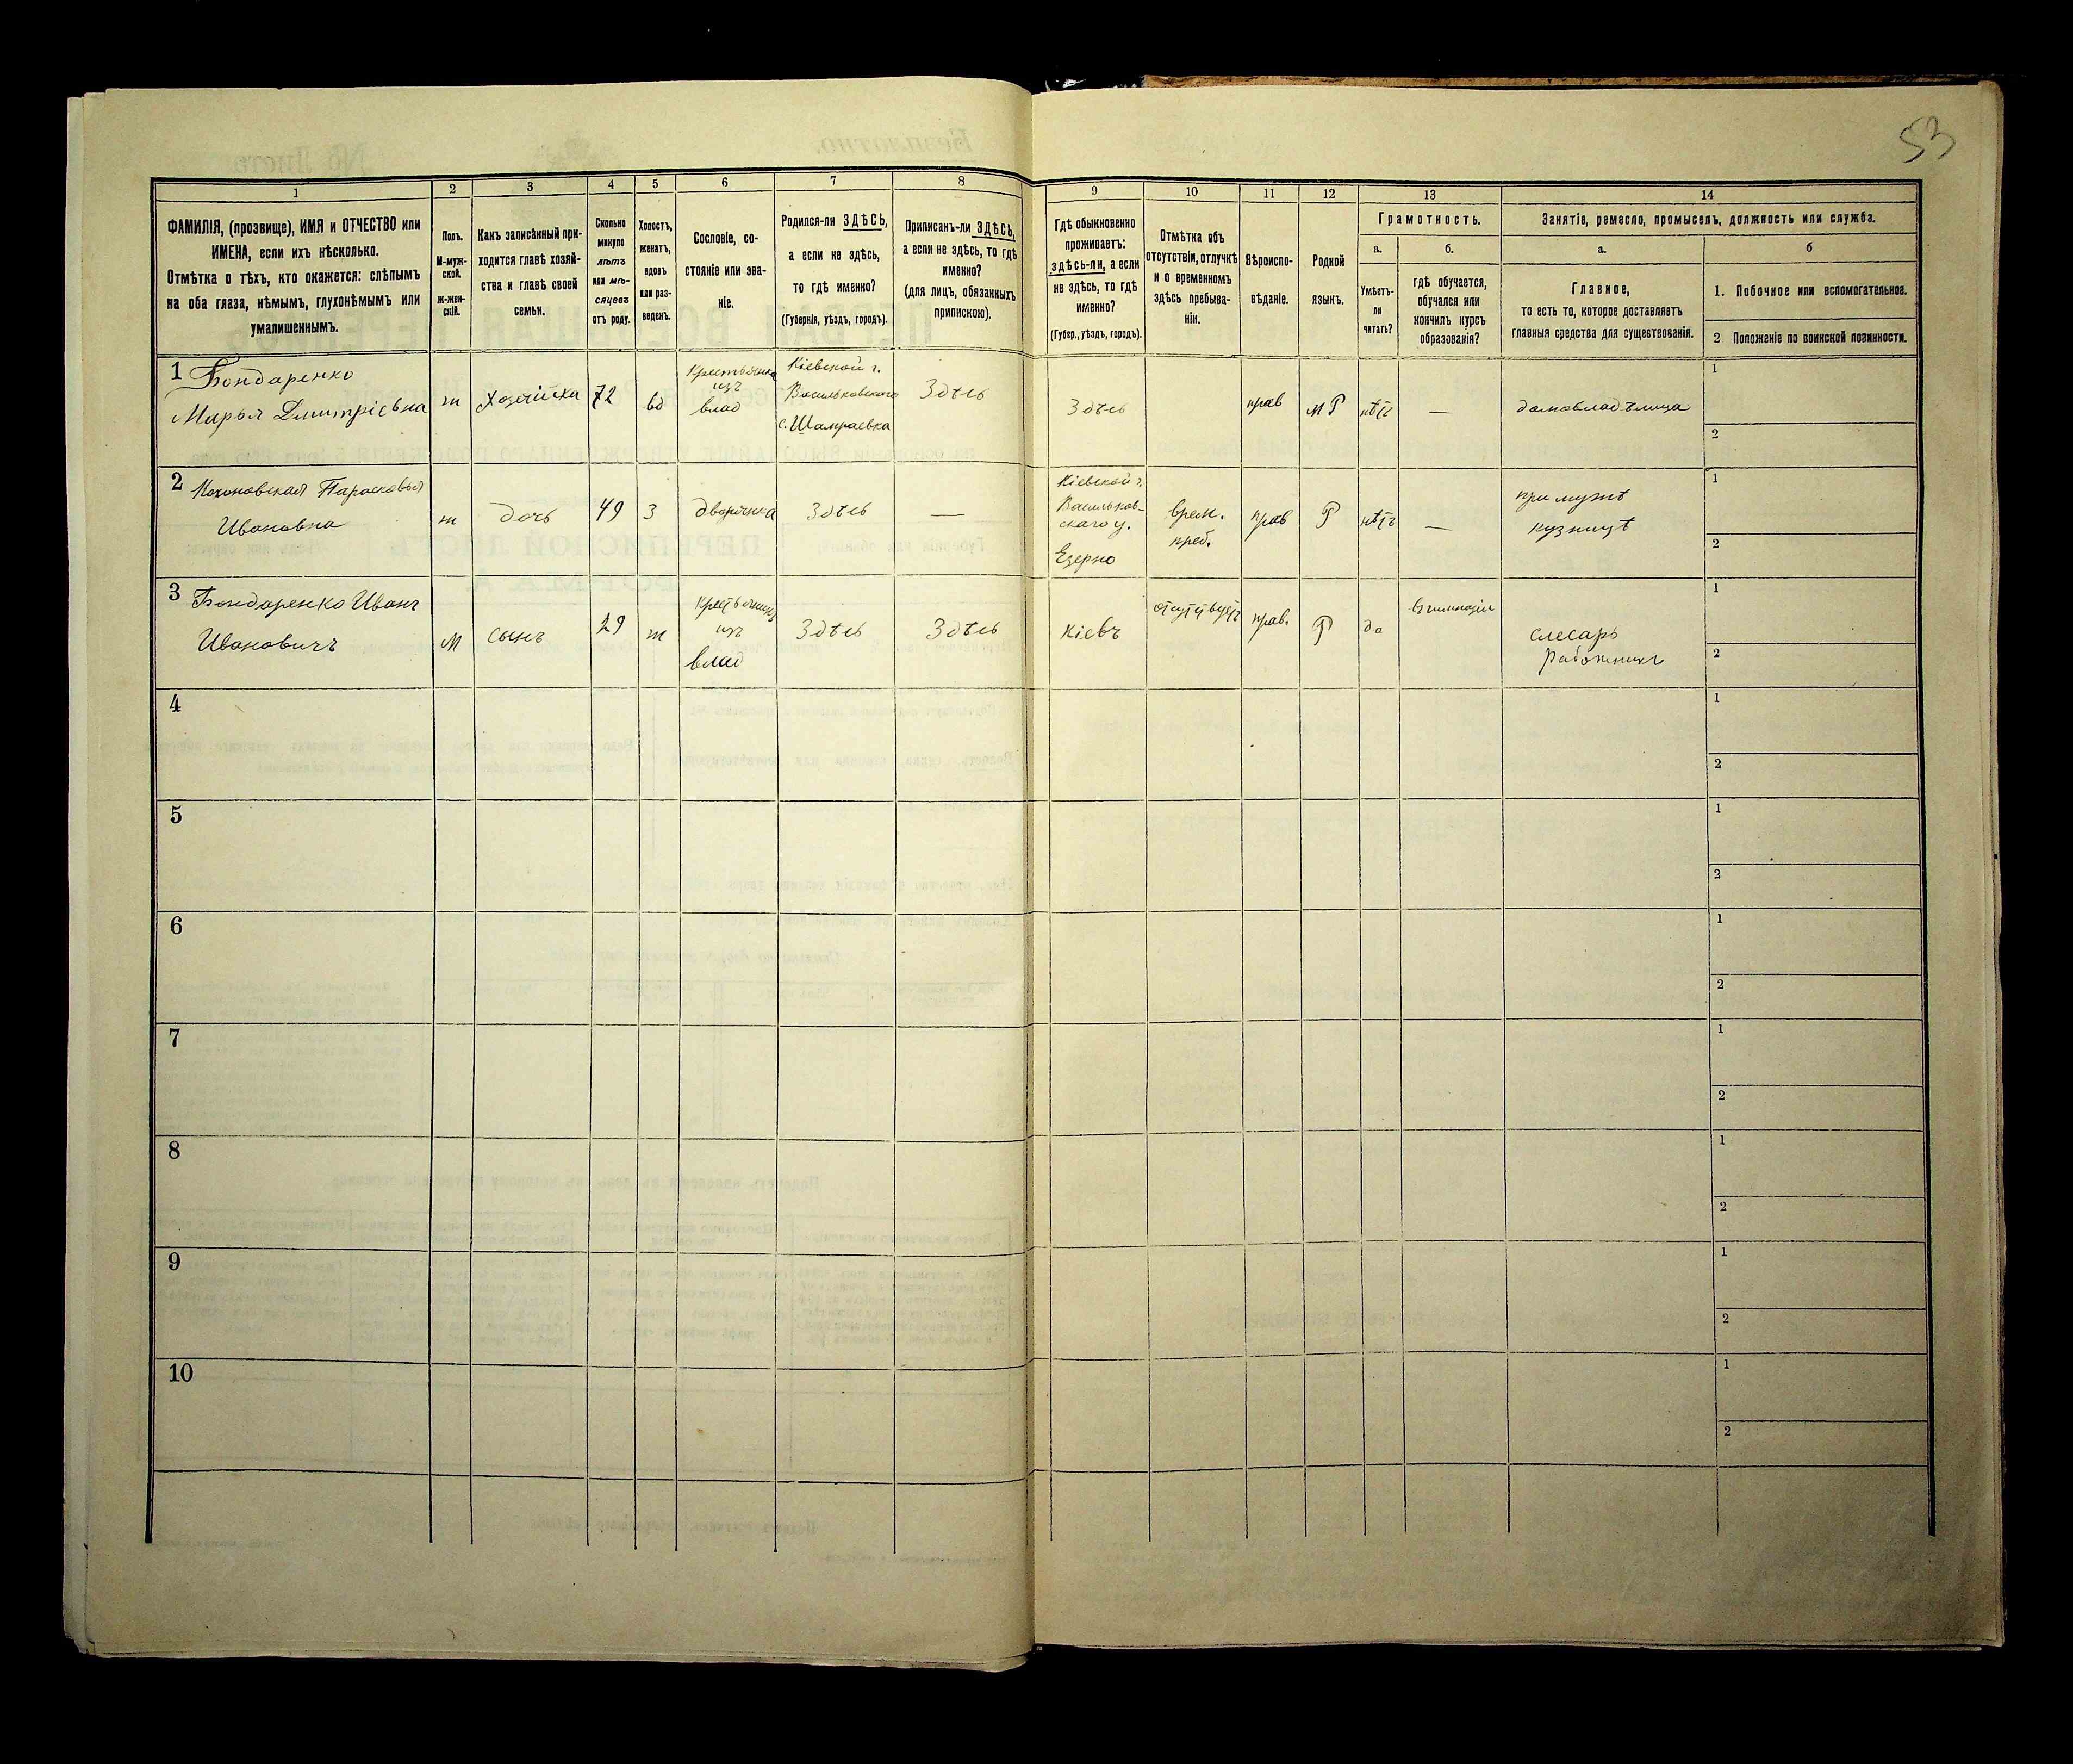 53
1 2 3 4 5 6 7 8 9 10 11 12 13 14
ФАМИЛІЯ, (прозвище), ИМЯ и ОТЧЕСТВО или
ИМЕНА, если ихъ нѣсколько.
Отмѣтка о тѣхъ, кто окажется: слѣпымъ
на оба глаза, нѣмымъ, глухонѣмымъ или
умалишеннымъ.
Полъ.
М-муж-
ской.
ж-жен-
скій.
Какъ записанный при-
ходится главѣ хозяй-
ства и главѣ своей
семьи.
Сколько
минуло
лѣтъ
или мѣ-
сяцевъ
отъ роду.
Холостъ,
женатъ,
вдовъ
или раз-
веденъ.
Сословіе, со-
стояніе или зва-
ніе.
Родился-ли ЗДѢСЬ,
а если не здѣсь,
то гдѣ именно?
(Губернія, уѣздъ, городъ).
Приписанъ-ли ЗДѢСЬ,
а если не здѣсь, то гдѣ
именно?
(для лицъ, обязанныхъ
припискою).
Гдѣ обыкновенно
проживаетъ:
здѣсь-ли, а если
не здѣсь, то гдѣ
именно?
(Губер., уѣздъ, городъ).
Отмѣтка объ
отсутствіи, отлучкѣ
и о временномъ
здѣсь пребыва-
ніи.
Вѣроиспо-
вѣданіе.
Родной
языкъ.
Грамотность.
а.
Умѣетъ-
ли
читать?
б.
гдѣ обучается,
обучался или
кончилъ курсъ
образованія?
Занятіе, ремесло, промыселъ, должность или служба.
а.
Главное,
то есть то, которое доставляетъ
главныя средства для существованія.
б
1. Побочное или вспомогательное.
2 Положеніе по воинской повинности.
1 Бондаренко
Марья Дмитріевна
ж
хозяйка
72
вд
Крестьянка
изъ
влад
Кіевской г.
Васильковского
с. Шамраевка
Здѣсь
Здѣсь
прав
М Р
нѣтъ
—
домовладѣлица
1
2
2 Парасковья
Ивановна
ж
дочь
49
З
дворянка
Здѣсь
—
Кіевской г.
Васильков-
скаго у.
Езерно
врем.
преб.
прав
Р
нѣтъ
—
при мужѣ
кузницѣ
1
2
3 Бондаренко Иванъ
Ивановичъ
М
сынъ
29
ж
крестьянинъ
изъ
влад
Здѣсь
Здѣсь
Кіевъ
отсутствуетъ
прав.
Р
да
въ гимназіи
слесарь
работникъ
1
2
4
1
2
5
1
2
6
1
2
7
1
2
8
1
2
9
1
2
10
1
2